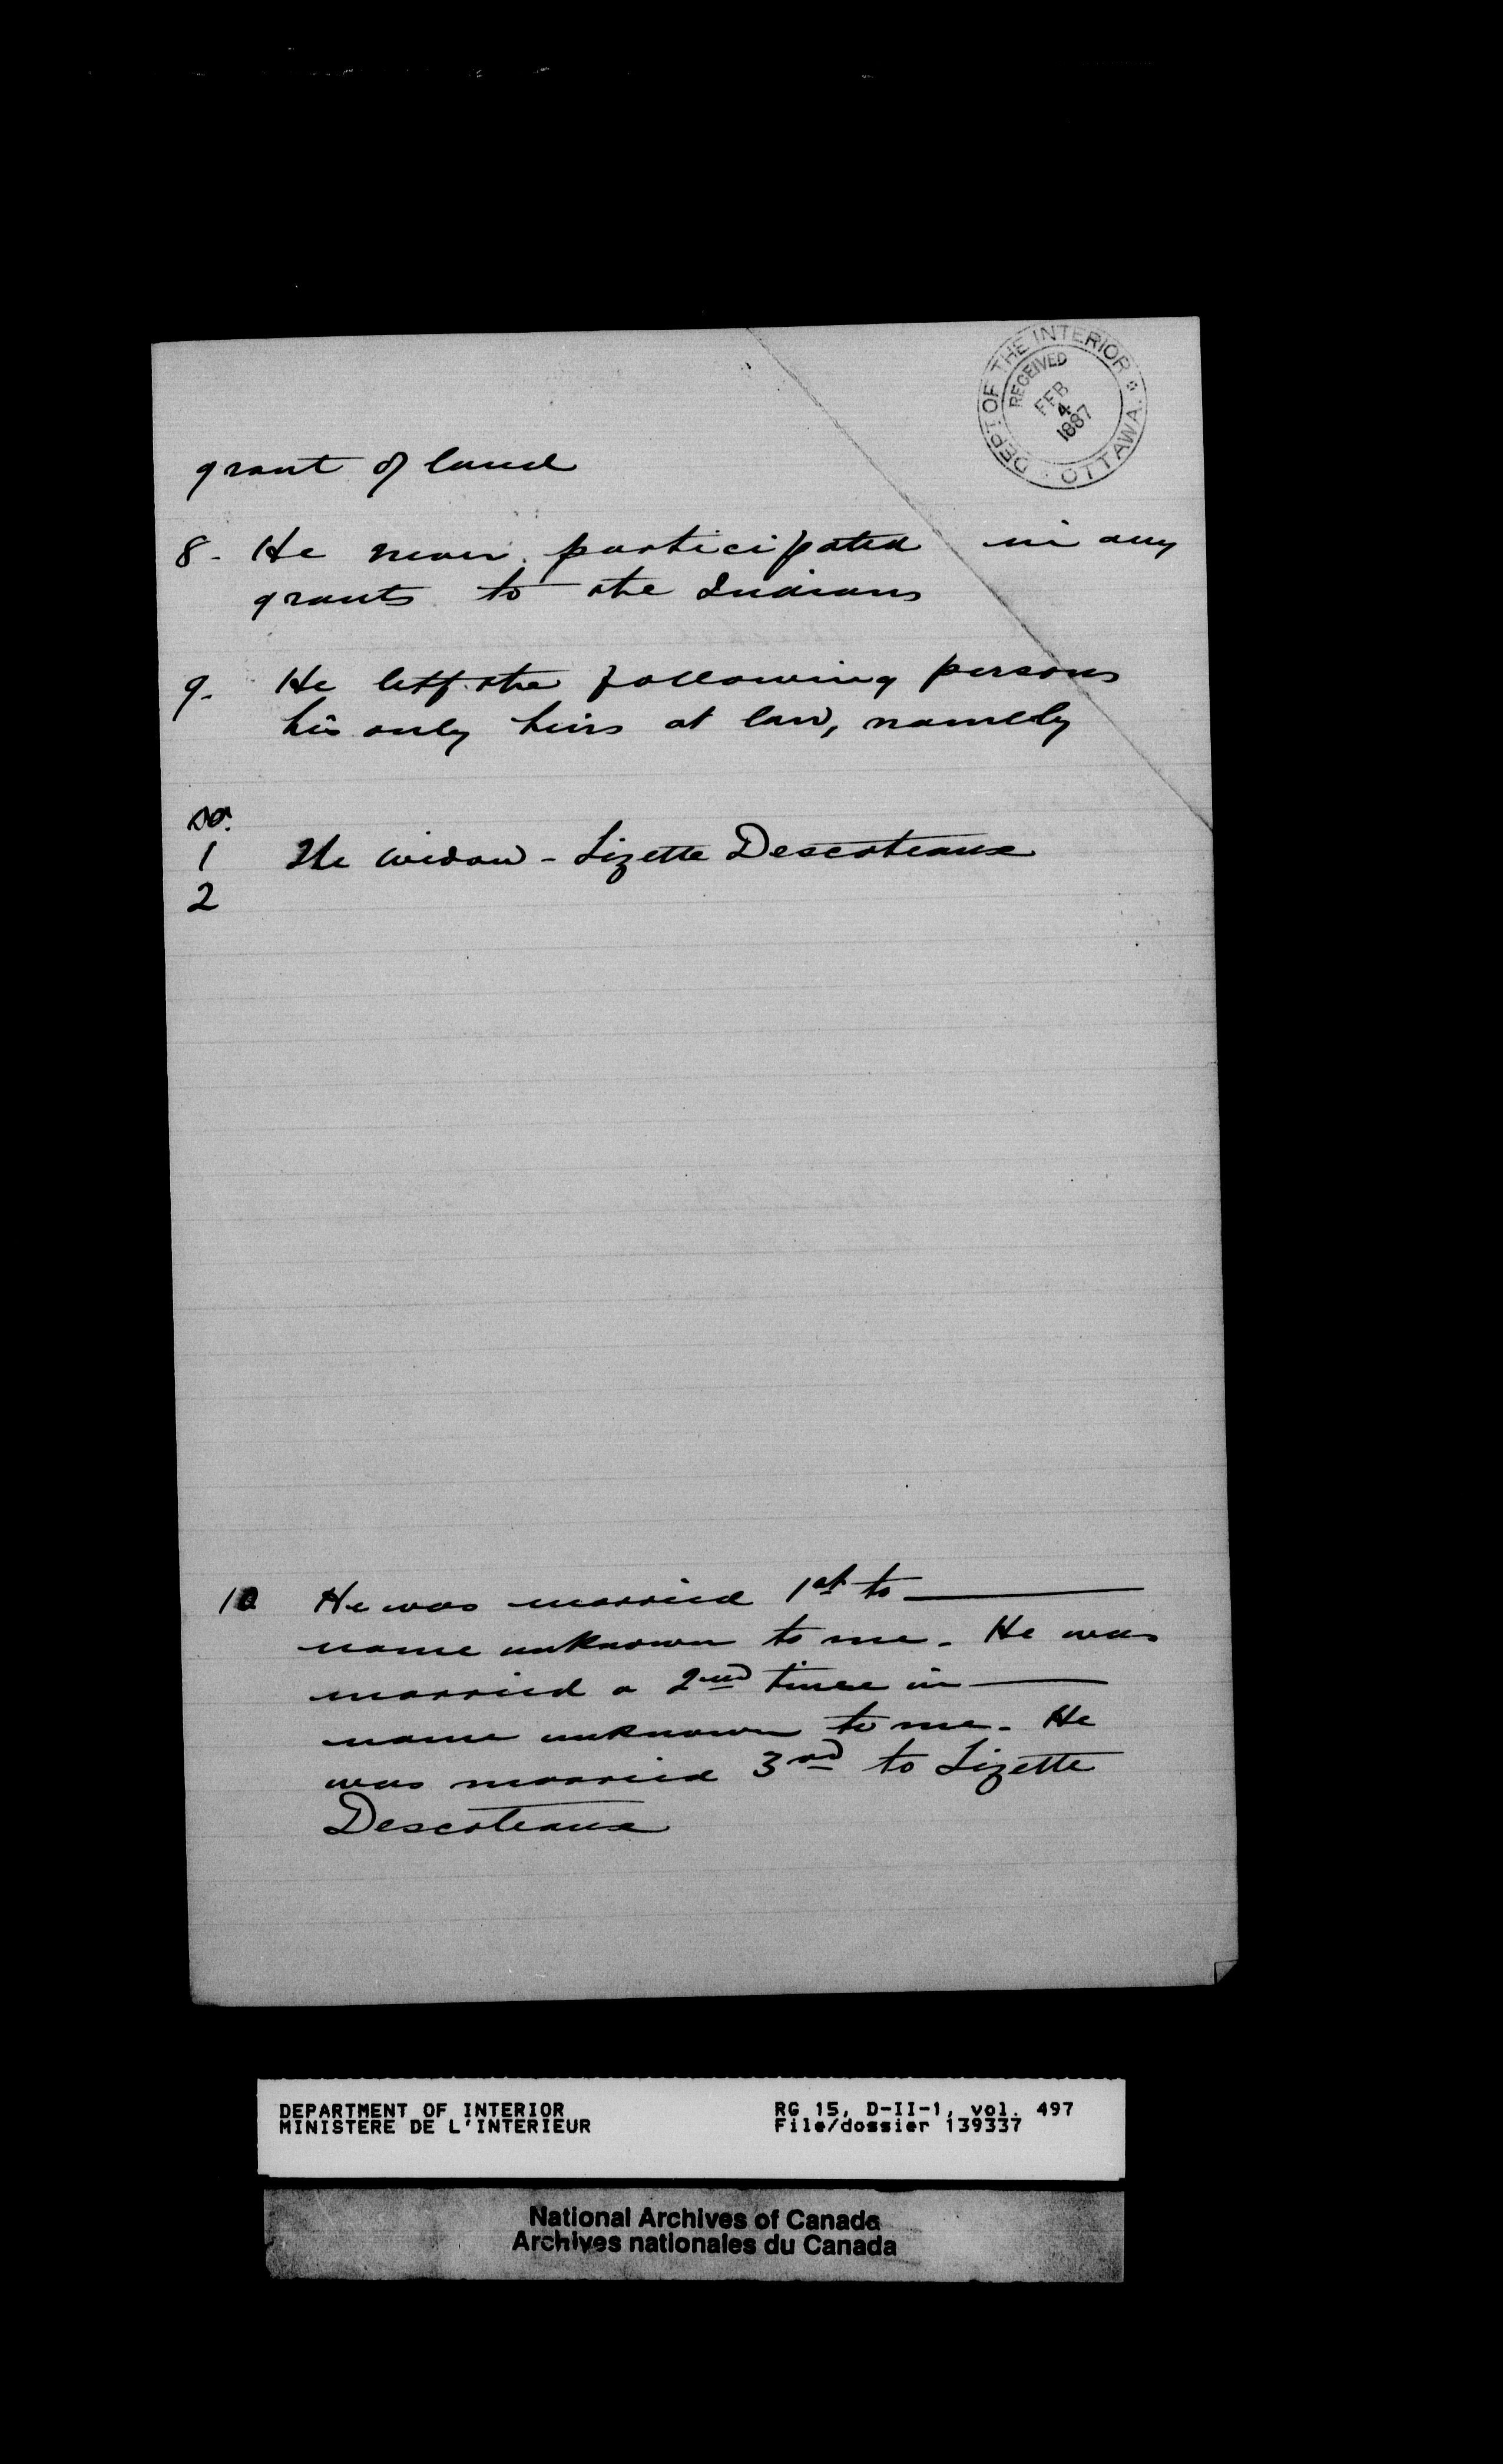 DEPT OF THE INTERIOR
RECEIVED
FEB
4
1887
OTTAWA.
grant of land
8- He never participated in any
grants to the Indians
9. He left the following persons
his only heirs at law, namely
No.
1 The widow - Lizette Descoteaux
2
10 He was married 1st to ———
name unknown to me. He was
married a 2nd time in ———
name unknown to me. He
was married 3rd to Lizette
Descoteaux
DEPARTMENT OF INTERIOR RG 15, D-II-1, vol. 497
MINISTERE DE L'INTERIEUR File/dossier 139337
National Archives of Canada
Archives nationales du Canada